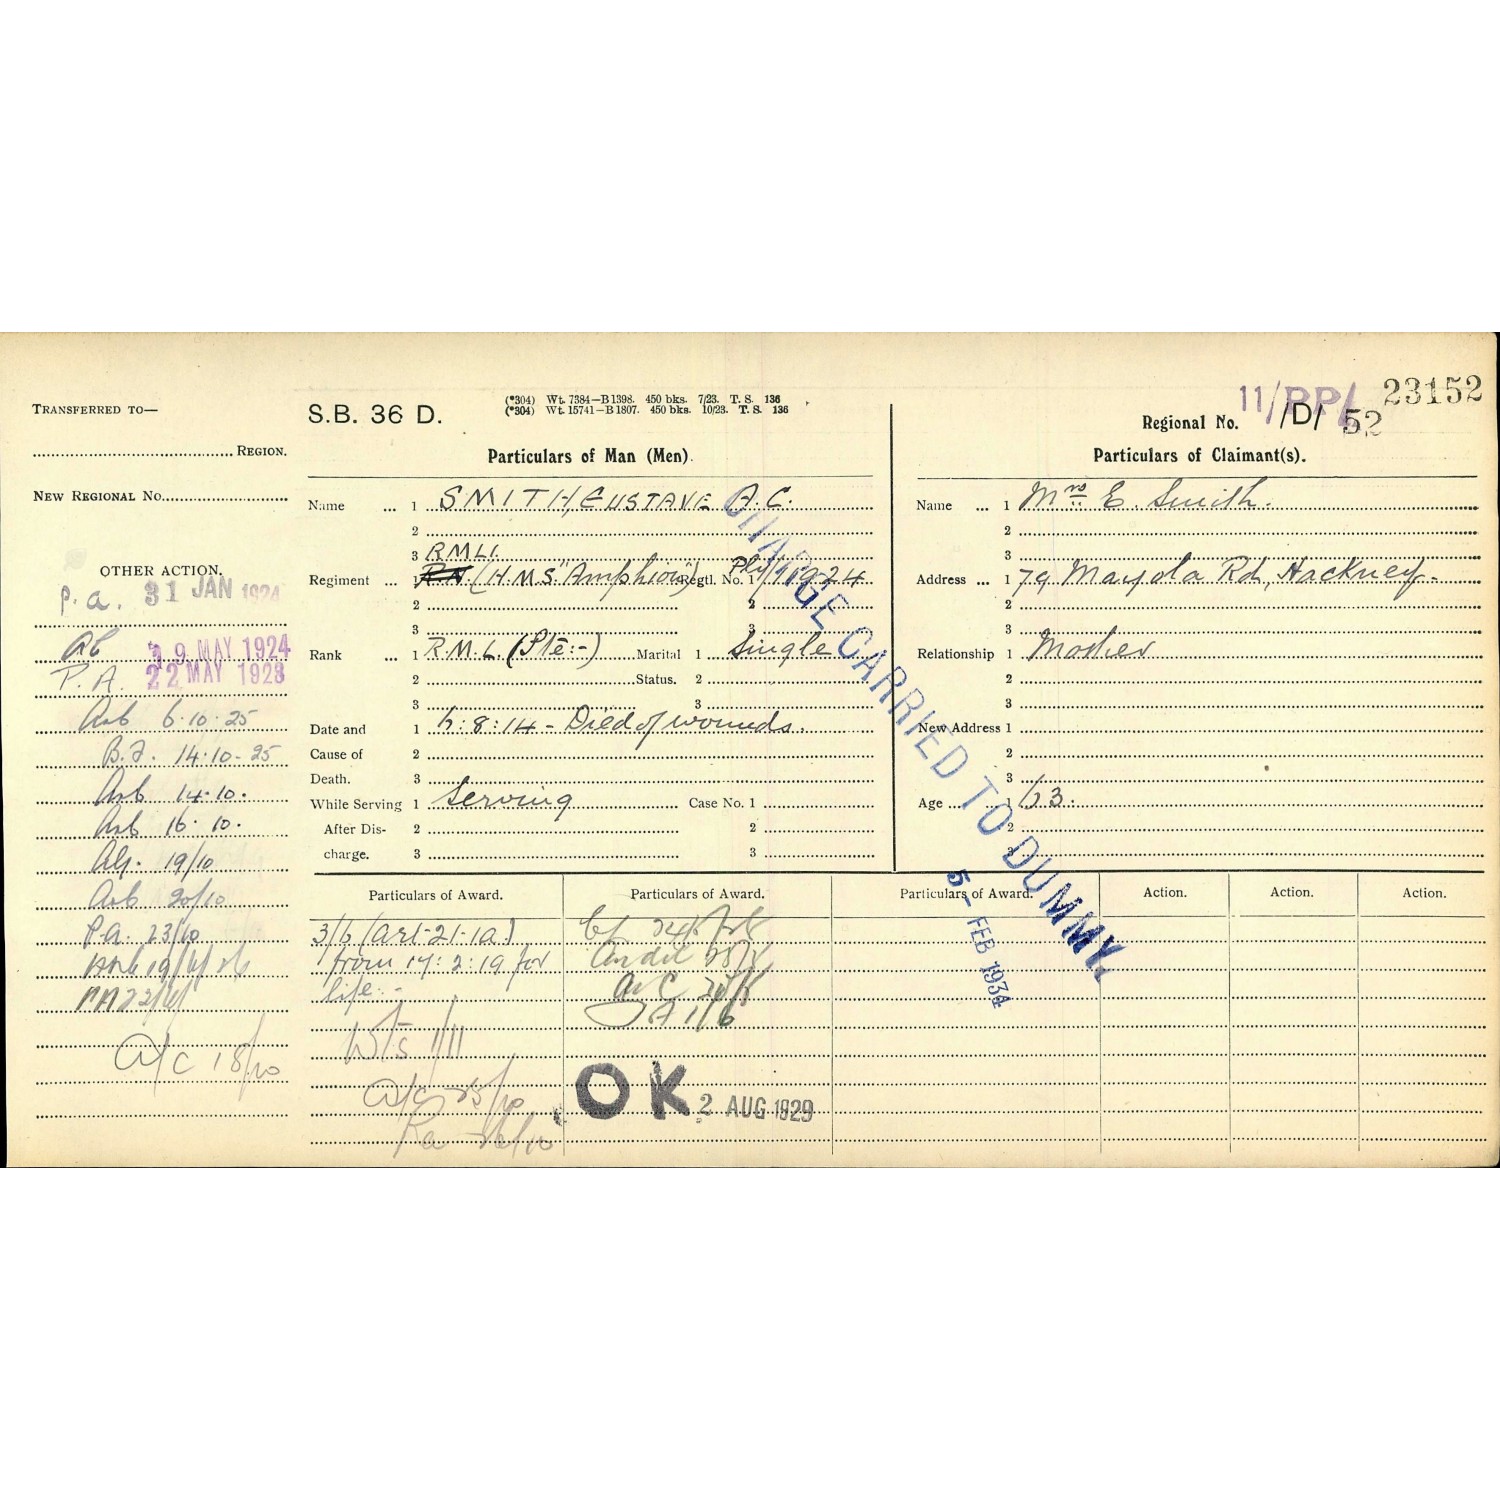 TRANSFERRED TO—
REGION.
NEW REGIONAL NO.
OTHER ACTION.
P.a. 31 JAN 1924
19 MAY 1924
P.A. 22 MAY 1928
6.10.25
B.F. 14.10-25
14.10.
16.10.
19/10
20/10
P.a. 23/10
PA 22/6/
A/C 18/10
S.B. 36 D.
(*304) Wt. 7384—B1398. 450 bks. 7/23. T. S. 136
(*304) Wt. 15741—B1807. 450 bks. 10/23. T. S. 136
Particulars of Man (Men).
Name ... 1 SMITH, GUSTAVE A.C.
2
3 RMLI.
Regiment ... 1 RN (H.M.S. "Amphion") Regtl. No. 1 Ply/
2 2
3 3
Rank ... 1 R.M.L. (Pte:-) Marital 1 Single
2 Status. 2
3 3
Date and 1 6:8:14 - Died of wounds.
Cause of 2
Death. 3
While Serving 1 Serving Case No. 1
After Dis- 2 2
charge. 3 3
11/PP/ 23152
Regional No. /D/ 52
Particulars of Claimant(s).
Name ... 1 Mrs E Smith.
2
3
Address ... 1 79 Mayola Rd, Hackney.
2
3
Relationship 1 Mother
2
3
New Address 1
2
3
Age ... 1 63.
2
3
CHARGE CARRIED TO DUMMY.
5- FEB 1934
Particulars of Award. Particulars of Award. Particulars of Award. Action. Action. Action.
3/6 (art-21-1a)
from 17:2:19 for
life:-
1/11
A/C 25/10
26/10
24/5
A/C
1/6
OK 2 AUG 1929